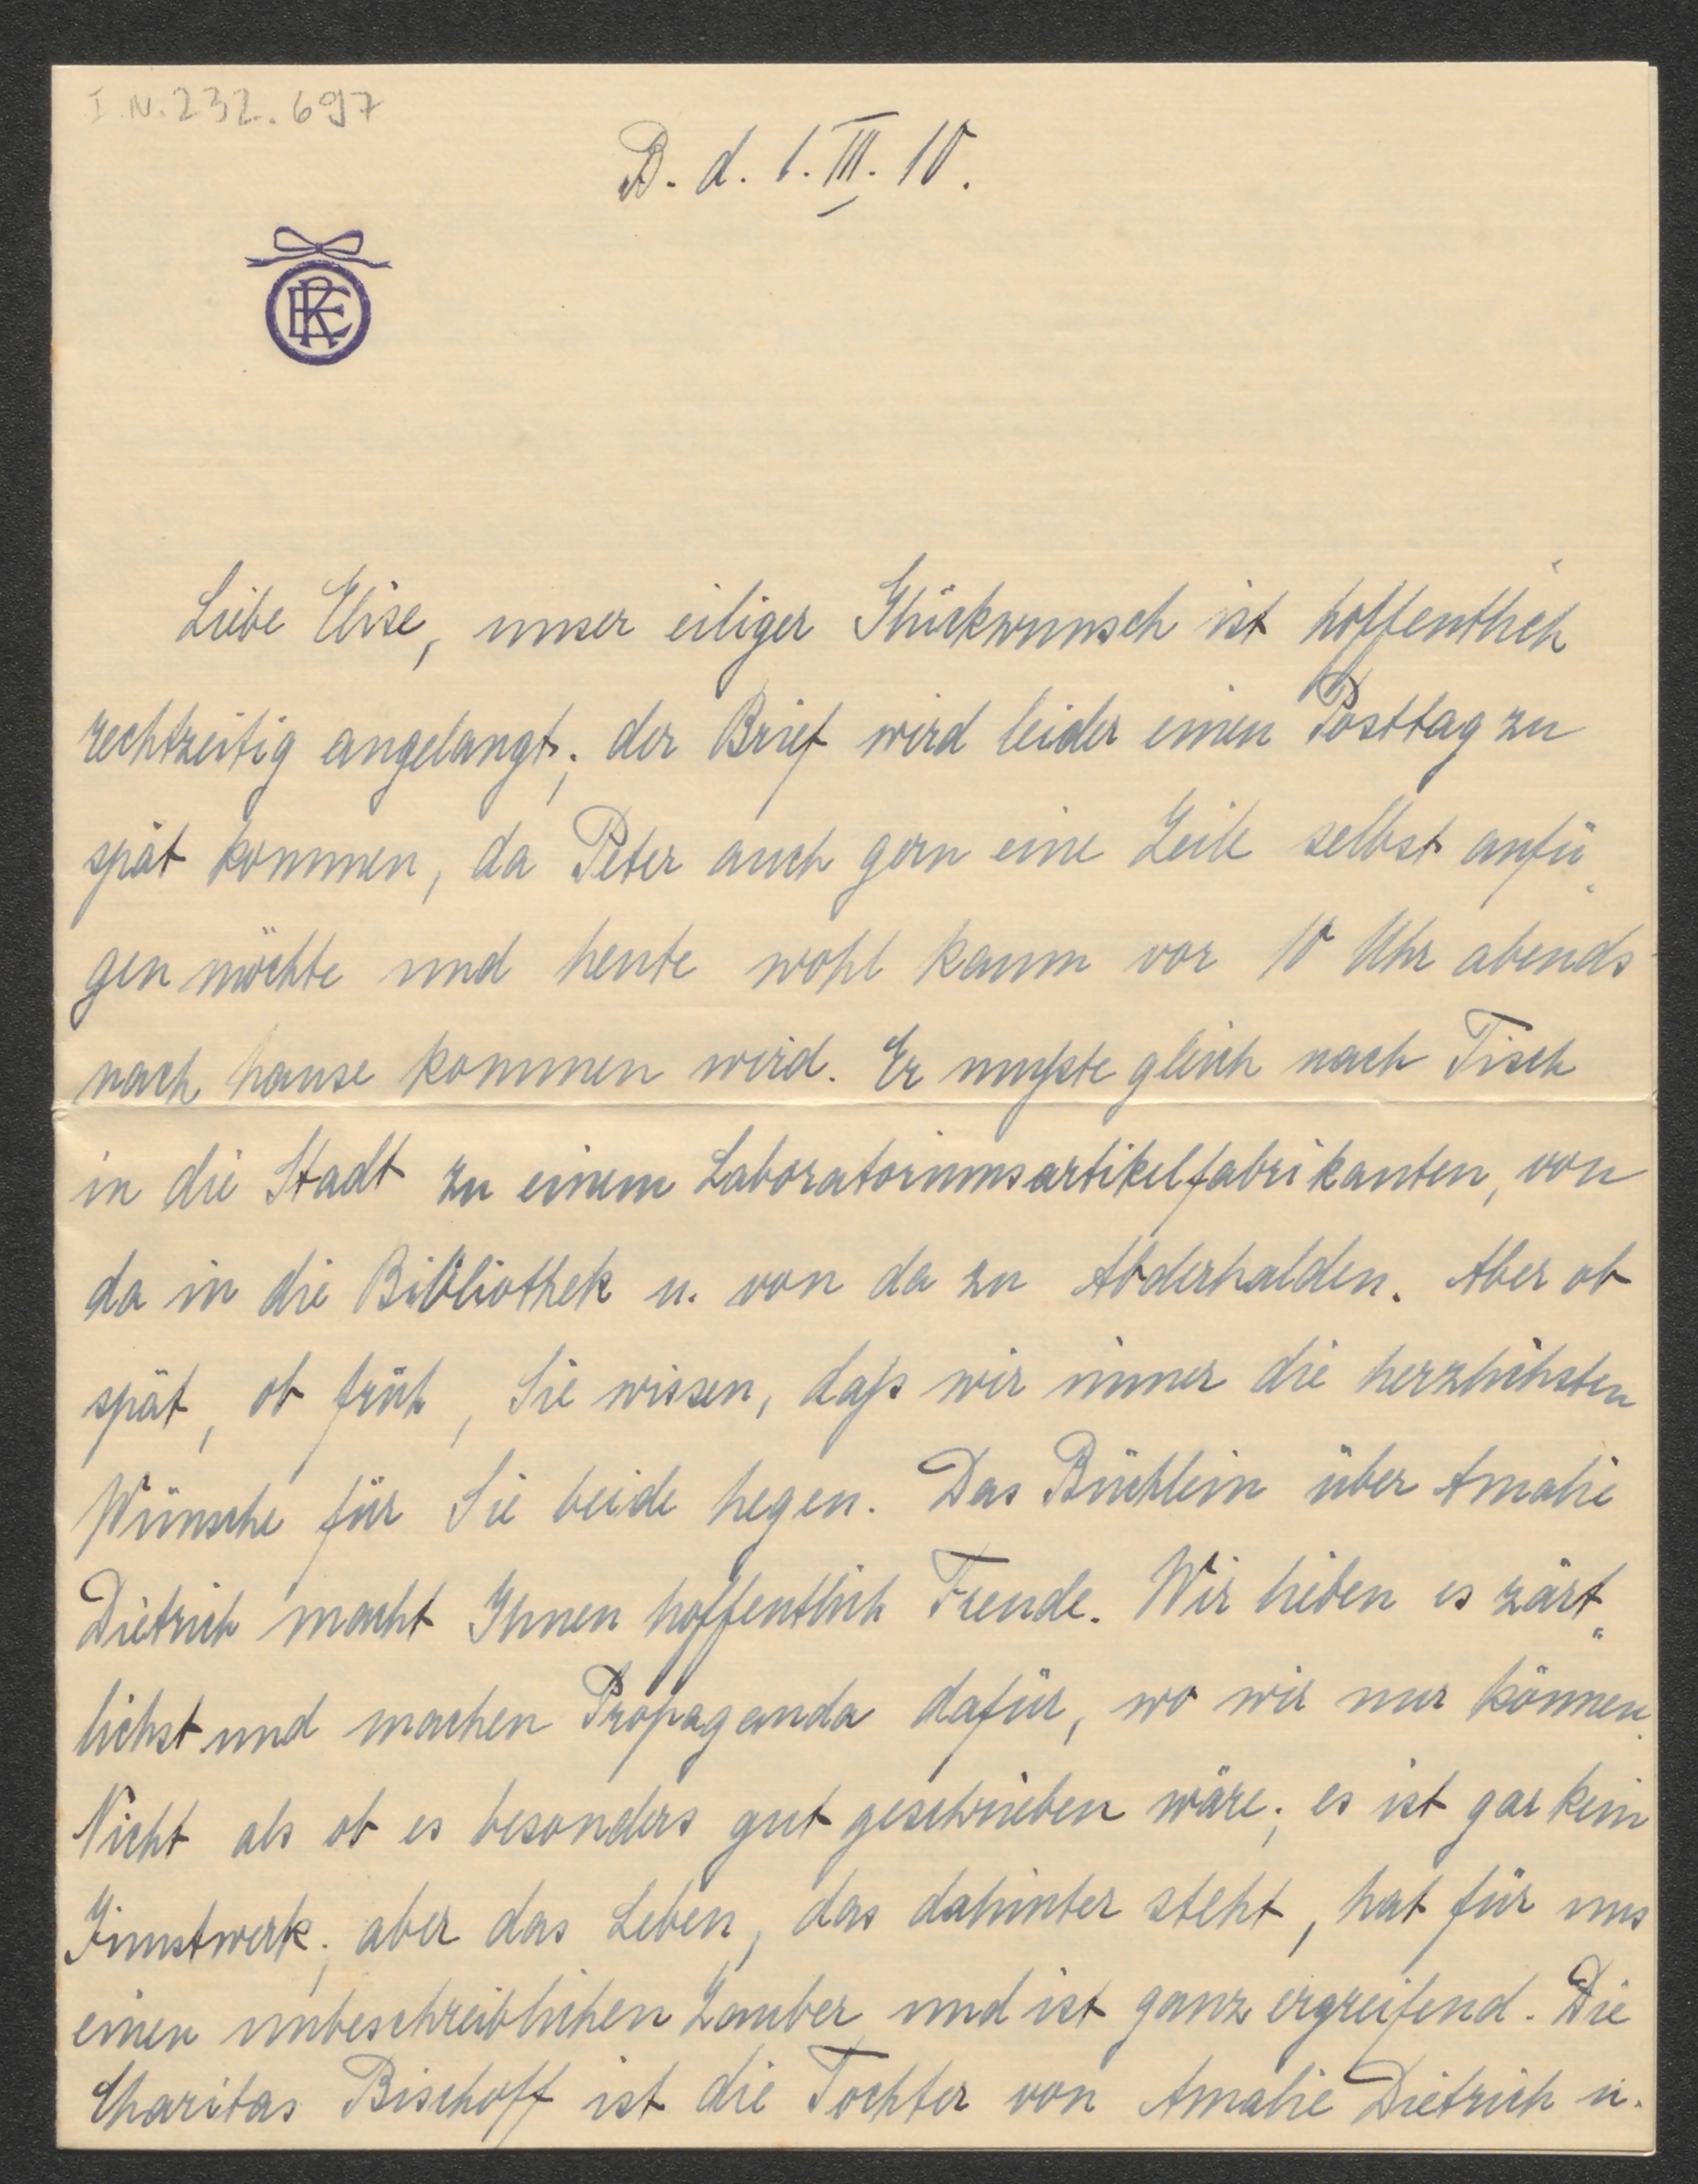 I.N. 232.697
B. d. 1. III. 10.
Liebe Elise, unser eiliger Glückwunsch ist hoffentlich
rechtzeitig angelangt; der Brief wird leider einen Posttag zu
spät kommen, da Peter auch gern eine Zeile selbst anfü-
gen möchte und heute wohl kaum vor 10 Uhr abends
nach hause kommen wird. Er mußte gleich nach Tisch
in die Stadt zu einem Laboratoriumsartikelfabrikanten, von
da in die Bibliothek u. von da zu Abderhalden. Aber ob
spät, ob früh, Sie wissen, daß wir immer die herzlichsten
Wünsche für Sie beide hegen. Das Büchlein über Amalie
Dietrich macht Ihnen hoffentlich Freude. Wir lieben es zärt-
lichst und machen Propaganda dafür, wo wir nur können.
Nicht als ob es besonders gut geschrieben wäre; es ist gar kein
Kunstwerk; aber das Leben, das dahinter steht, hat für uns
einen unbeschreiblichen Zauber und ist ganz ergreifend. Die
Charitas Bischoff ist die Tochter von Amalie Dietrich u.